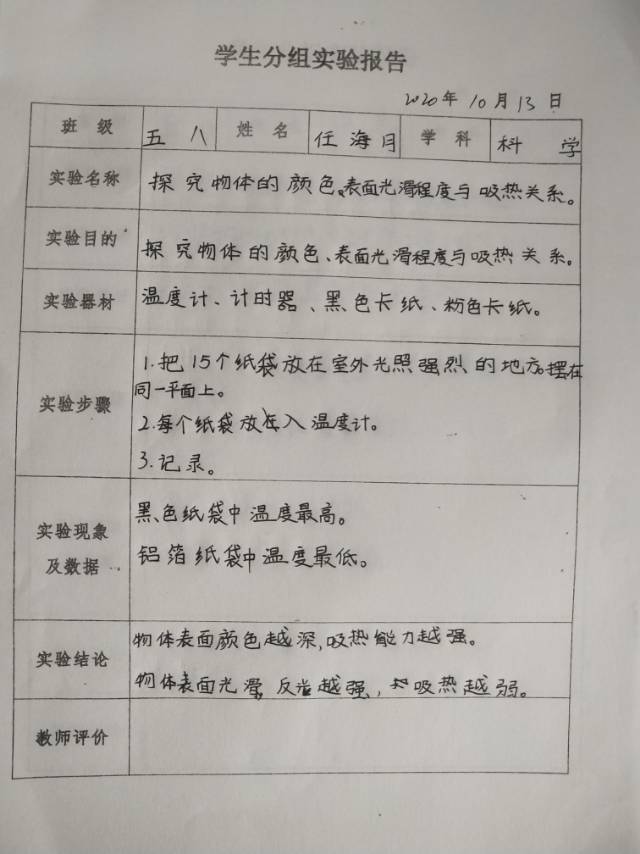 学生分组实验报告
2020年10月13日
班 级 五 八 姓 名 任海月 学 科 科 学
实验名称 探究物体的颜色、表面光滑程度与吸热关系。
实验目的 探究物体的颜色、表面光滑程度与吸热关系。
实验器材 温度计、计时器、黑色卡纸、粉色卡纸。
1.把15个纸袋放在室外光照强烈的地方。摆在
同一平面上。
实验步骤
2.每个纸袋放入温度计。
3.记录。
黑色纸袋中温度最高。
实验现象
及数据
铝箔纸袋中温度最低。
物体表面颜色越深,吸热能力越强。
实验结论
物体表面光滑,反光越强,吸热越弱。
教师评价